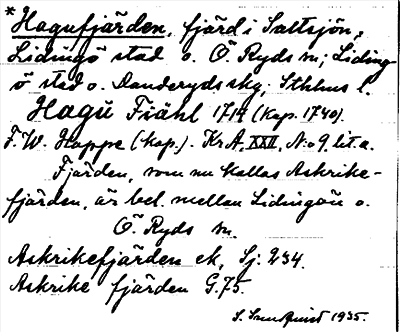 * Hagufjärden, fjärd i Saltsjön,
Lidingö stad o. Ö. Ryds sn; Liding
ö stad o. Danderyds skg; Sthlms l.
Hagu Fiähl 1714 (kop. 1740).
F. W. Hoppe (kop.). Kr A, XXII, N:o 9, lit a.
Fjärden, som nu kallas Askrike-
fjärden, är bel. mellan Lidingön o.
Ö. Ryds sn.
Askrikefjärden ek, Sj: 234.
Askrike fjärden G.75.
1935.